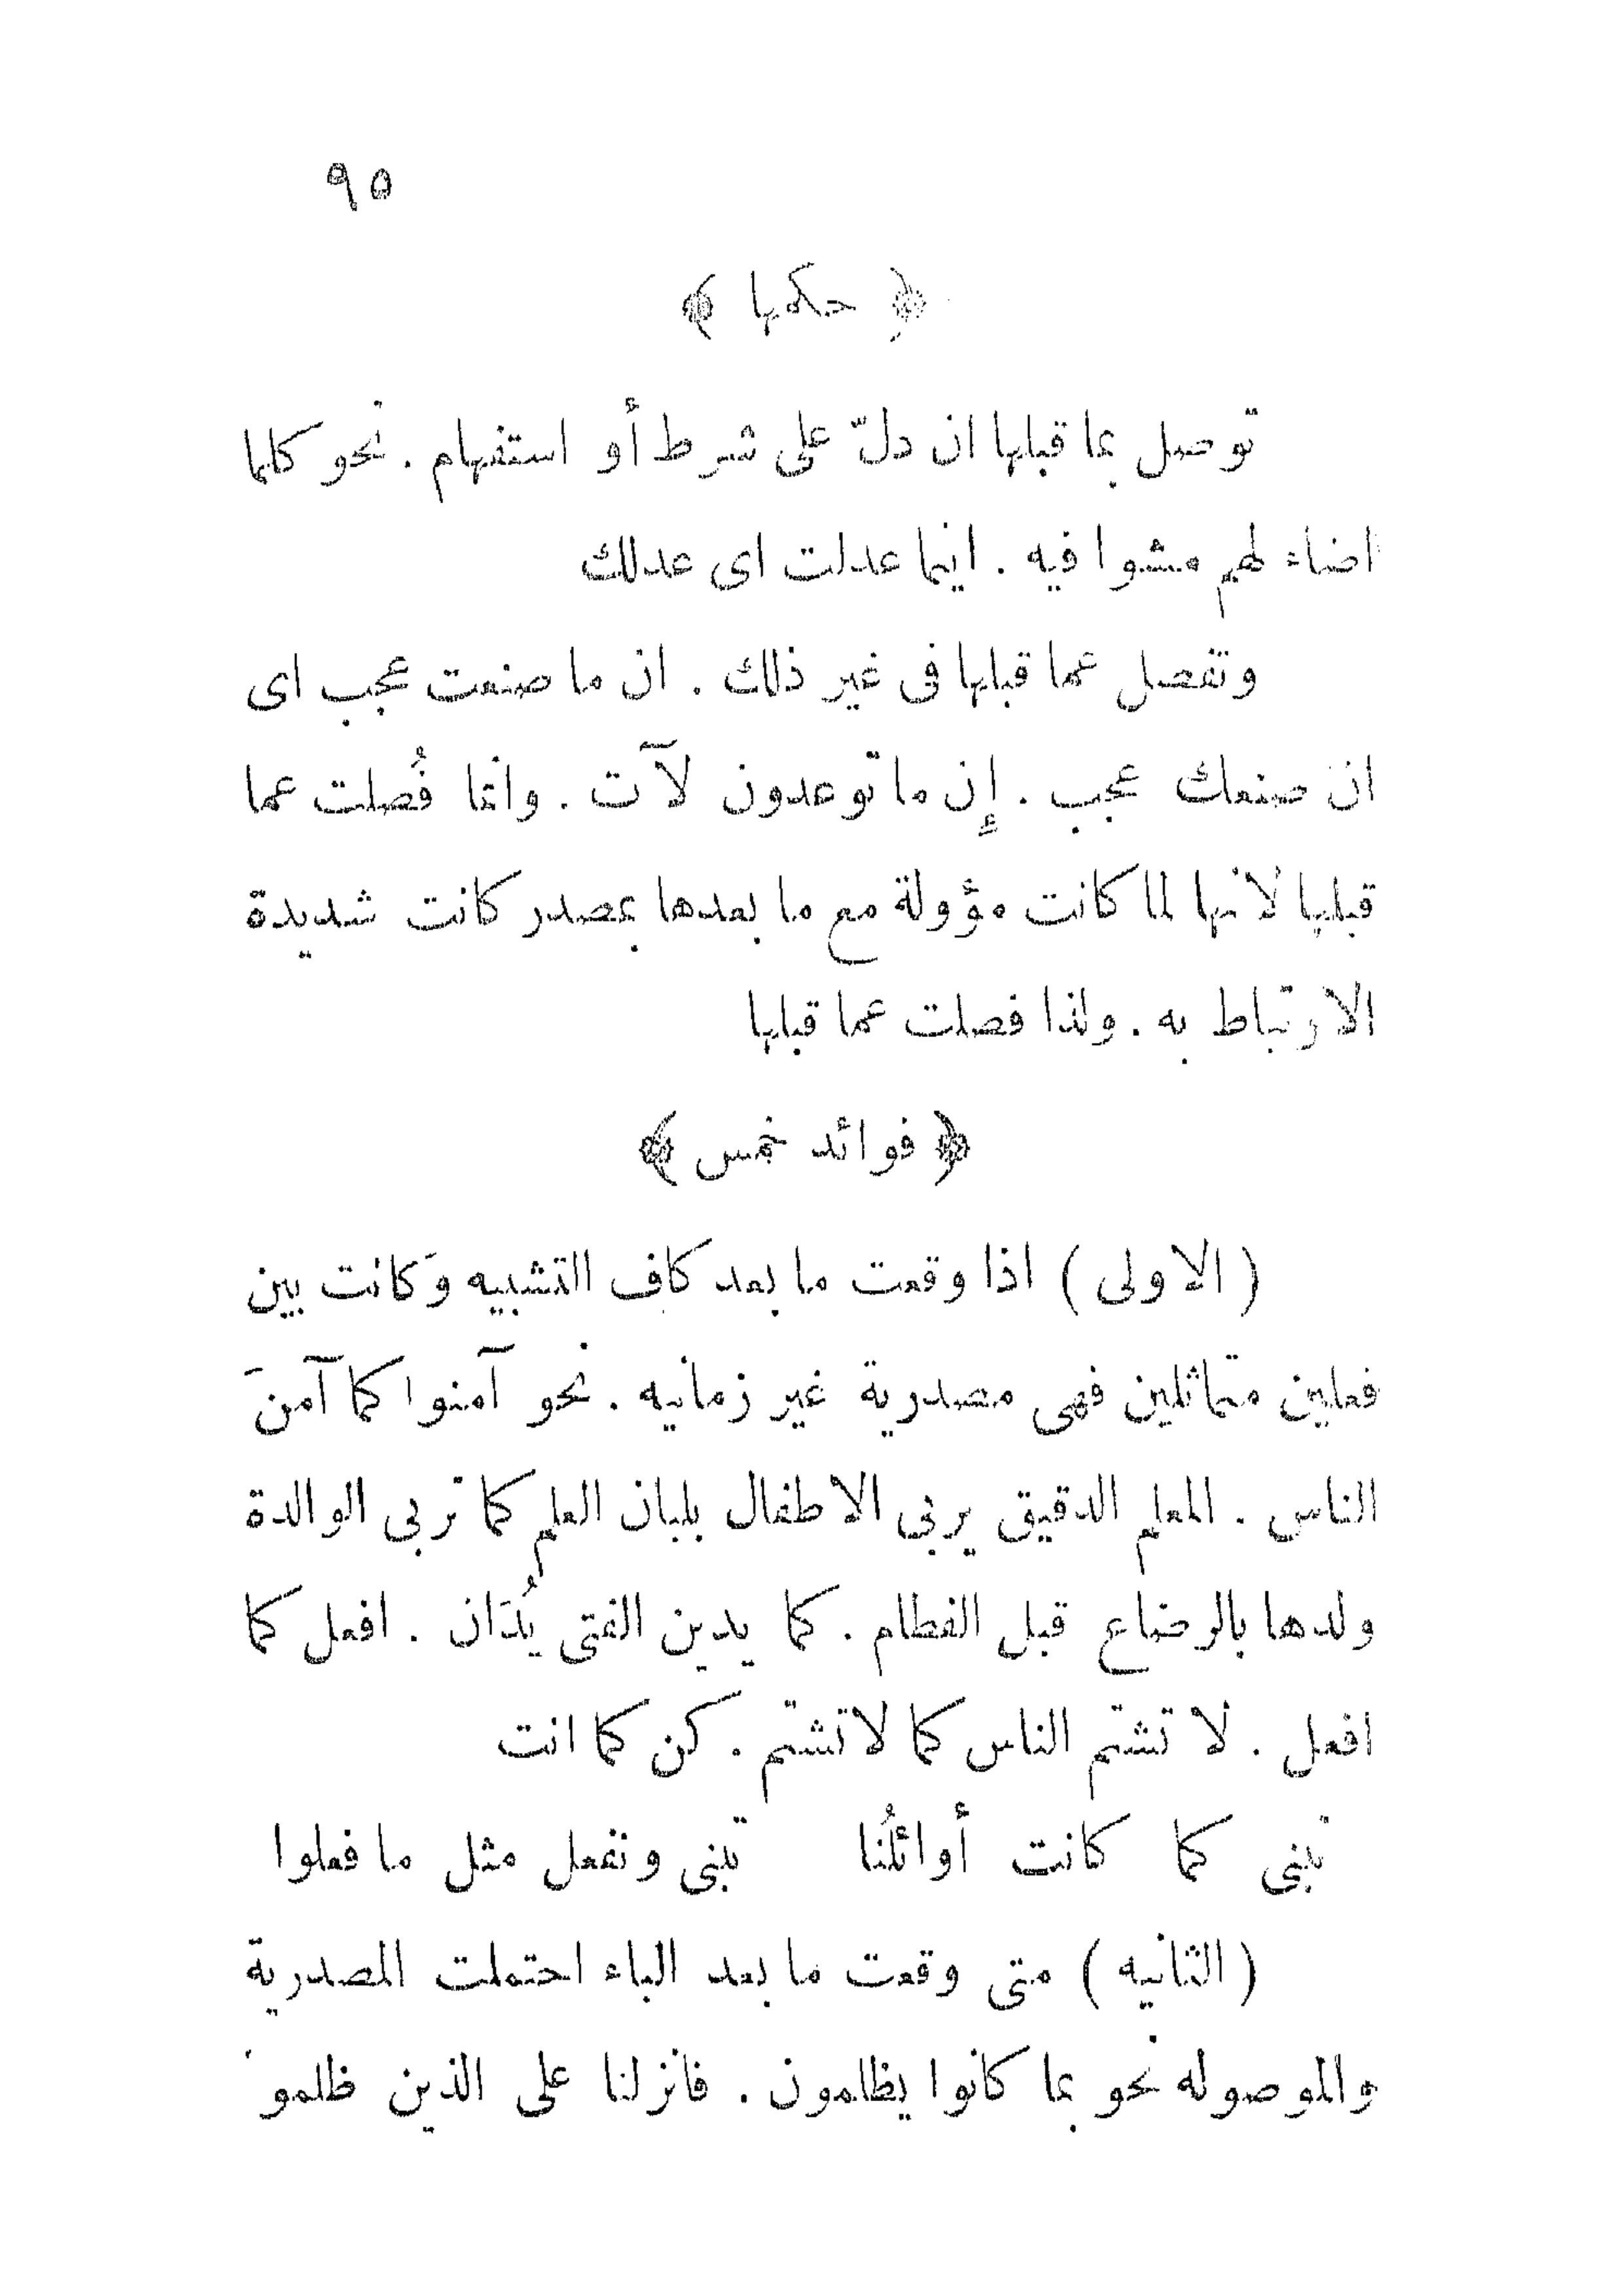 ٩٥
﴿ حكمها ﴾
توصل بما قبلها ان دلّ على شرط أو استفهام . نحو كلما
اضاء لهم مشوا فيه . اينما عدلت اى عدلك
وتفصل عما قبلها فى غير ذلك . ان ما صنعت عجب اى
ان صنعك عجب . إن ما توعدون لآت . وانما فُصلت عما
قبلها لانها لما كانت مؤولة مع ما بعدها بمصدر كانت شديدة
الارتباط به . ولذا فصلت عما قبلها
﴿ فوائد خمس ﴾
( الاولى ) اذا وقعت ما بعد كاف التشبيه وَكانت بين
فعلين متماثلين فهى مصدرية غير زمانيه . نحو آمنوا كما آمنَ
الناس . المعلم الدقيق يربى الاطفال بلبان العلم كما تربى الوالدة
ولدها بالرضاع قبل الفطام . كما يدين الفتى يُدَان . افعل كما
افعل . لا تشتم الناس كما لا تشتم . كن كما انت
نبنى كما كانت أوائلُنا تبنى ونفعل مثل ما فعلوا
( الثانيه ) متى وقعت ما بعد الباء احتملت المصدرية
والموصوله نحو بما كانوا يظلمون . فانزلنا على الذين ظلمو